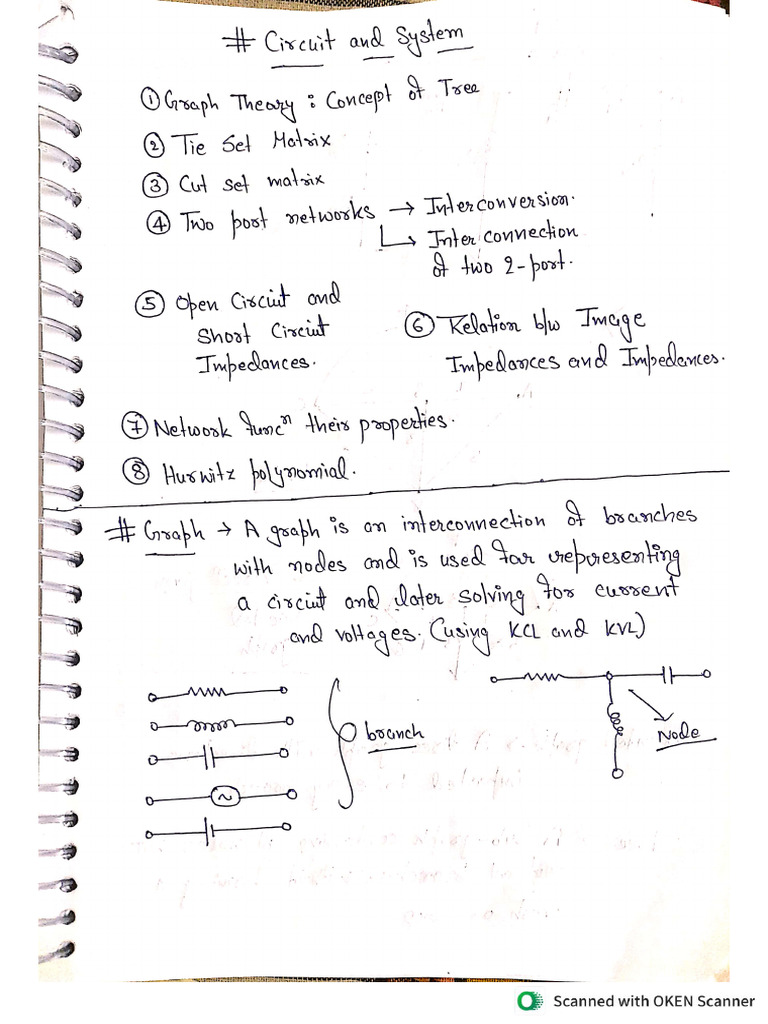 # Circuit and System
① Graph Theory : Concept of Tree
② Tie Set Matrix
③ Cut set matrix
④ Two port networks → Interconversion.
↳ Inter connection
of two 2-port.
⑤ Open Circuit and
Short Circuit
Impedances.
⑥ Relation b/w Image
Impedances and Impedances.
⑦ Network funcⁿ their properties.
⑧ Hurwitz polynomial.
# Graph → A graph is an interconnection of branches
with nodes and is used for representing
a circuit and later solving for current
and voltages. (using KCL and KVL)
branch
Node
Scanned with OKEN Scanner